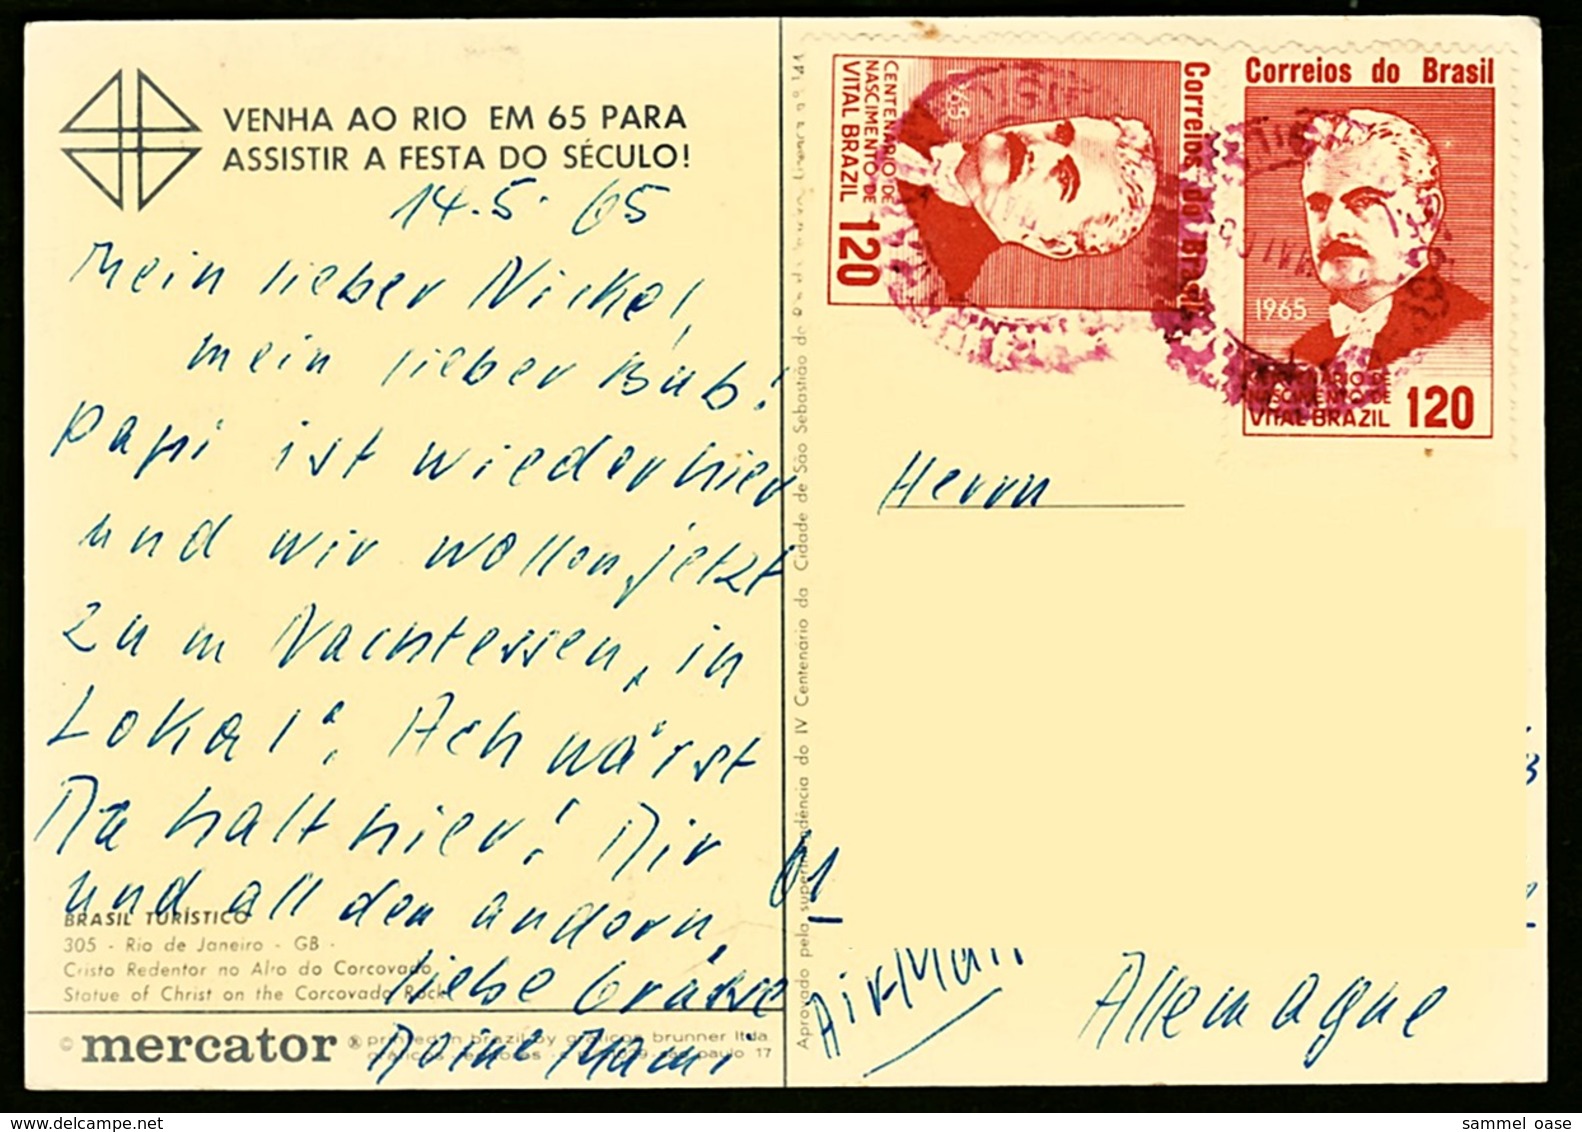 VENHA AO RIO EM 65 PARA
ASSISTIR A FESTA DO SÉCULO!
14.5.65
Mein lieber Nickel,
mein lieber Bub!
Papi ist wieder hier
und wir wollen jetzt
zum Nachtessen, in
Lokal. Ach wärst
Du halt hier! Dir
und all den andern,
liebe Grüsse
Deine Mami
BRASIL TURÍSTICO
305 - Rio de Janeiro - GB -
Cristo Redentor no Alto do Corcovado
Statue of Christ on the Corcovado Rock
© mercator ® printed in brazil by gráficos brunner ltda
são paulo 17
Aprovado pela superintendência do IV Centenário da Cidade de São Sebastião do
CENTENÁRIO DE
NASCIMENTO DE
VITAL BRAZIL
120
1965
Correios do Brasil
Correios do Brasil
1965
CENTENÁRIO DE
NASCIMENTO DE
VITAL BRAZIL 120
Herrn
Air-Mail
Allemagne
sammel oase